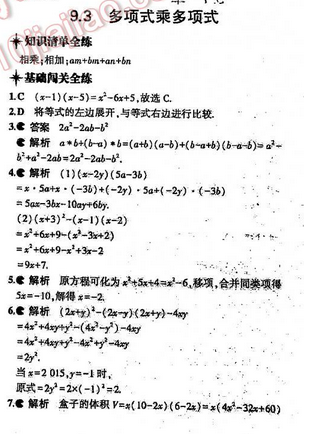 9.3 多项式乘多项式
知识清单全练
相乘;相加;am+bm+an+bn
基础闯关全练
1.C (x-1)(x-5)=x²-6x+5,故选C.
2.D 将等式的左边展开,与等式右边进行比较.
3. 答案 2a²-2ab-b²
解析 a*b+(b-a)*b=(a+b)(a-b)+(b-a+b)(b-a-b)=a²-
b²+a²-2ab=2a²-2ab-b².
4. 解析 (1)(x-2y)(5a-3b)
=x·5a+x·(-3b)+(-2y)·5a+(-2y)·(-3b)
=5ax-3bx-10ay+6by.
(2)(x+3)²-(x-1)(x-2)
=x²+6x+9-(x²-3x+2)
=x²+6x+9-x²+3x-2
=9x+7.
5. 解析 原方程可化为x²+5x+4=x²-6,移项,合并同类项得
5x=-10,解得x=-2.
6. 解析 (2x+y)²-(2x-y)(2x+y)-4xy
=4x²+4xy+y²-(4x²-y²)-4xy
=4x²+4xy+y²-4x²+y²-4xy
=2y².
当x=2 015,y=-1时,
原式=2y²=2×(-1)²=2.
7. 解析 盒子的体积V=x(10-2x)(6-2x)=x(4x²-32x+60)